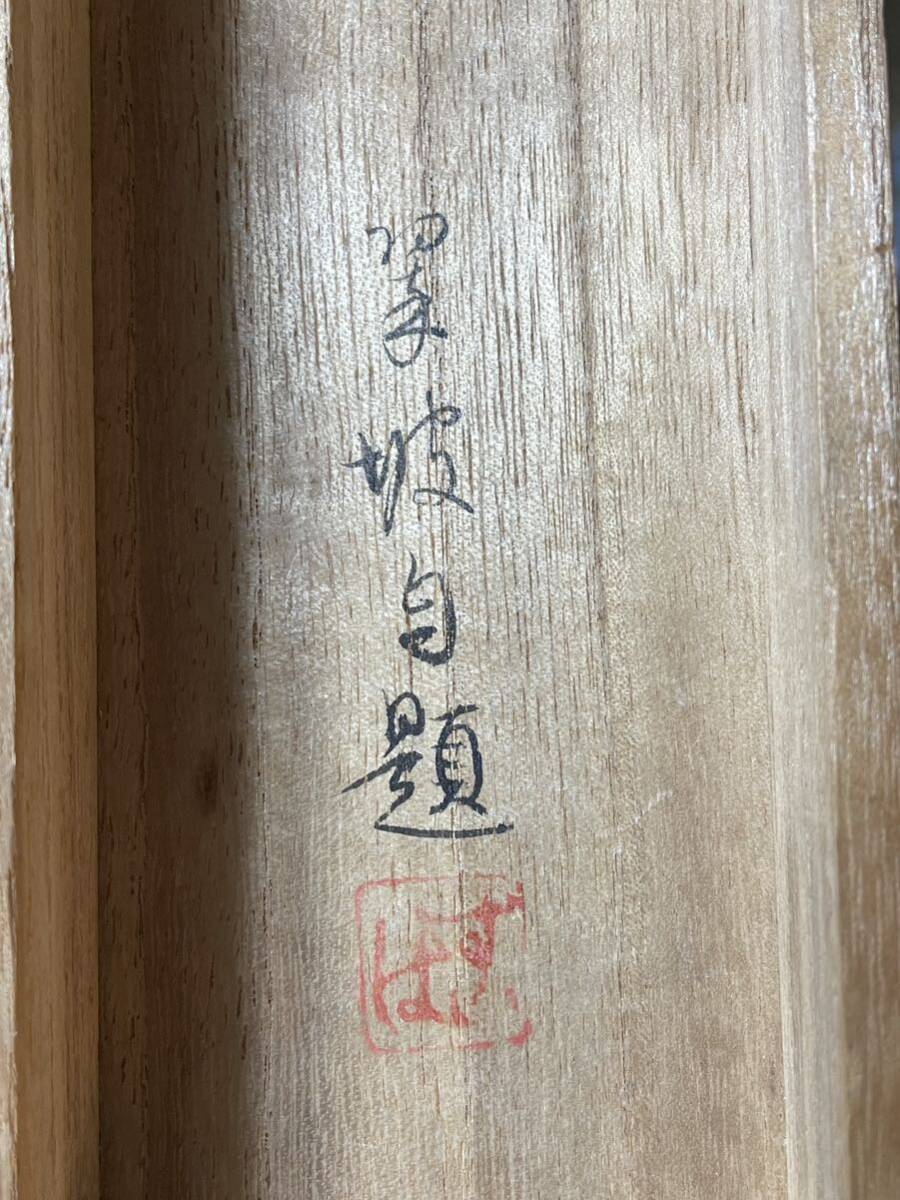 翠坡自題